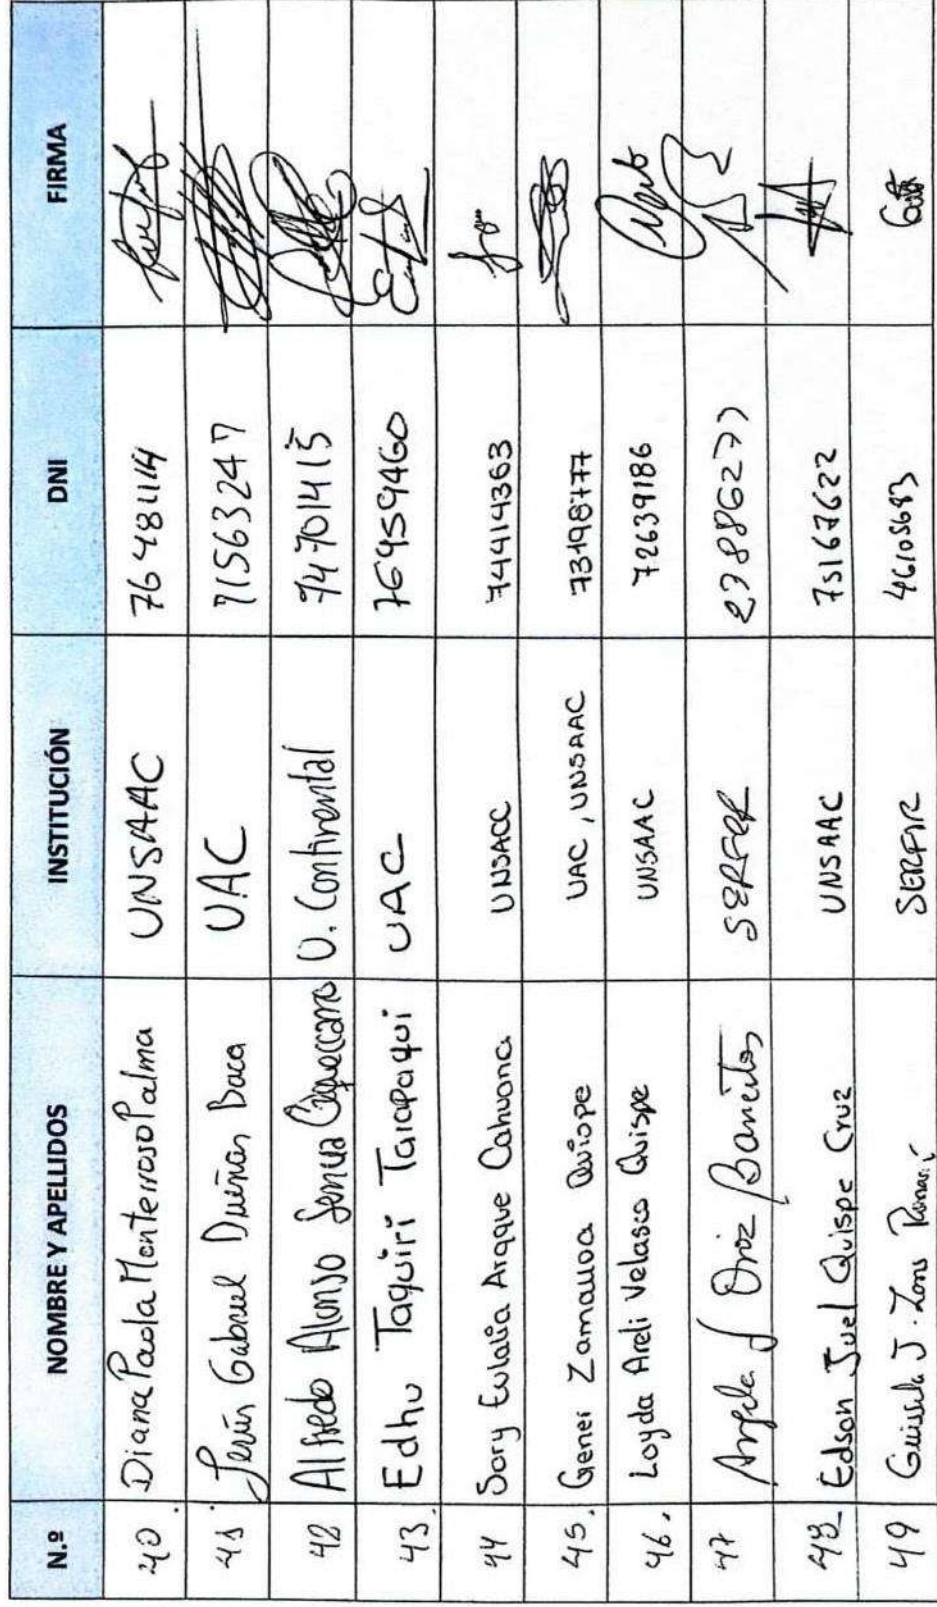 N.º NOMBRE Y APELLIDOS INSTITUCIÓN DNI FIRMA
40. Diana Paola Monterroso Palma UNSAAC
41. Gabriel Dueñas Baca UAC 71563247
42 Alfredo Alonso U. Continental 74701415
43. Edhu Taquiri Taipaqui UAC 76959460
44 Sory Eulalia Arque Cahuana UNSACC 74414363
45. Genei Zamalloa Quispe UAC, UNSAAC 73198777
46. Loyda Areli Velasco Quispe UNSAAC 72639186
47 Angela SERFOR
48 Edson Juel Quispe Cruz UNSAAC 75167622
49 J. SERFOR 46105683